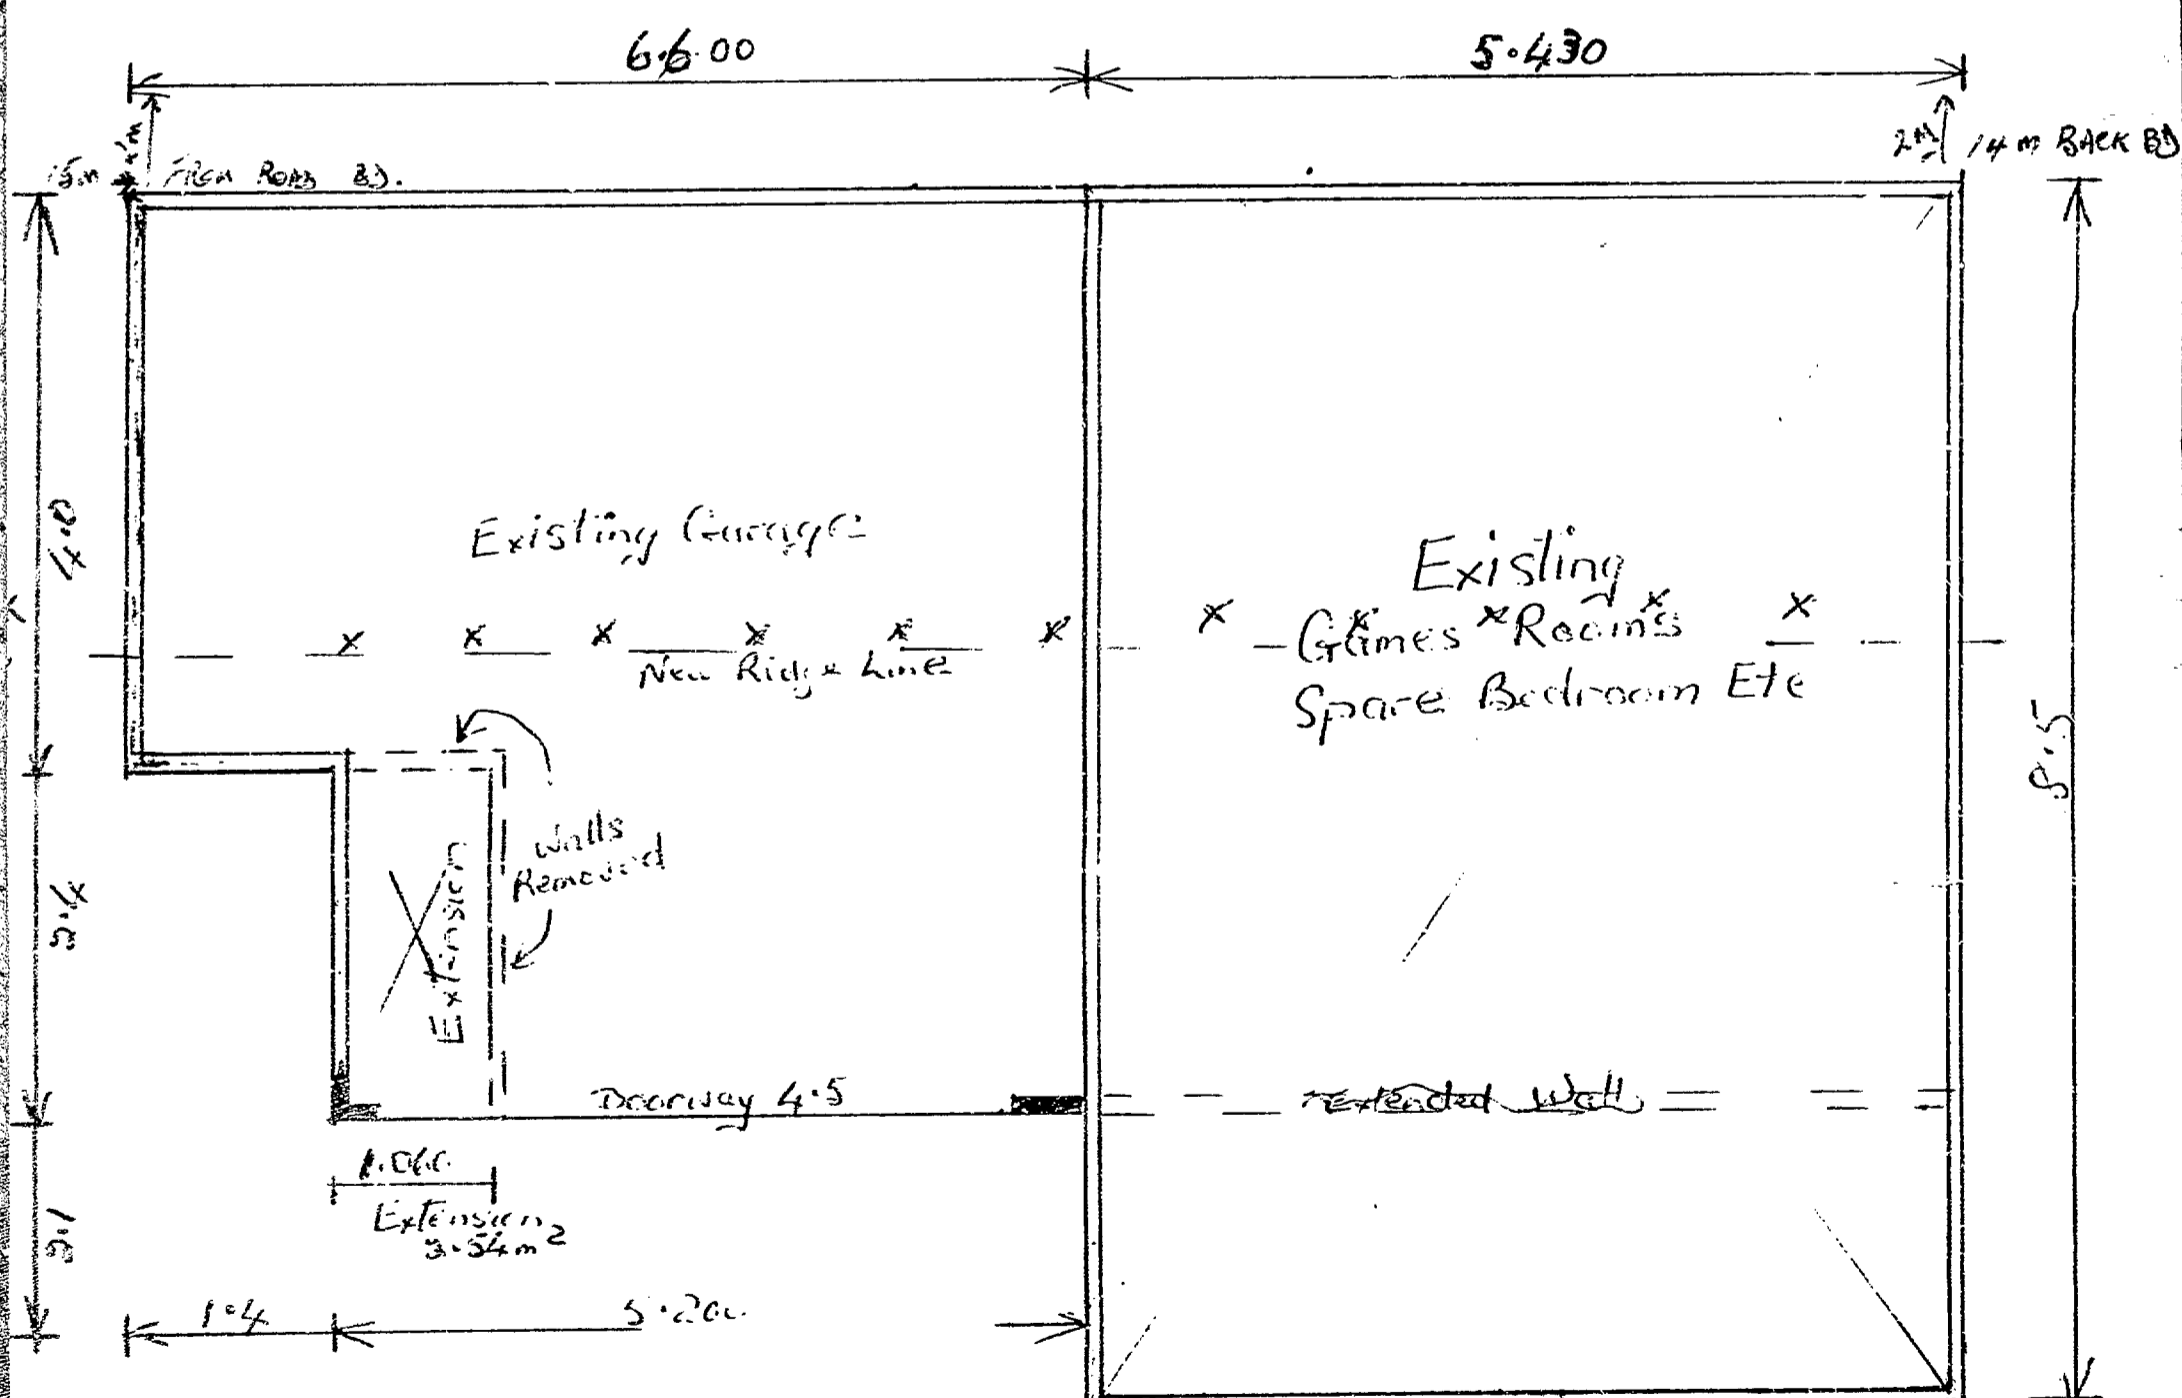 6.6.00
5.430
15m
FROM ROAD BD.
2M
14 m BACK BD
4.0
Existing Garage
Existing
Games Rooms
Spare Bedroom Etc
New Ridge Line
8.5
Walls
Removed
Extension
2.4
Doorway 4.5
Extended Wall
1.066
Extension
3.54m²
1.4
5.200